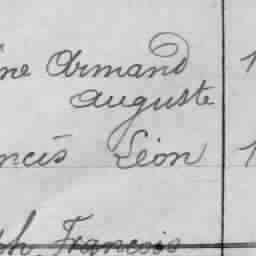 ine Armand 1
Auguste
ncis Léon 1
ph Francois